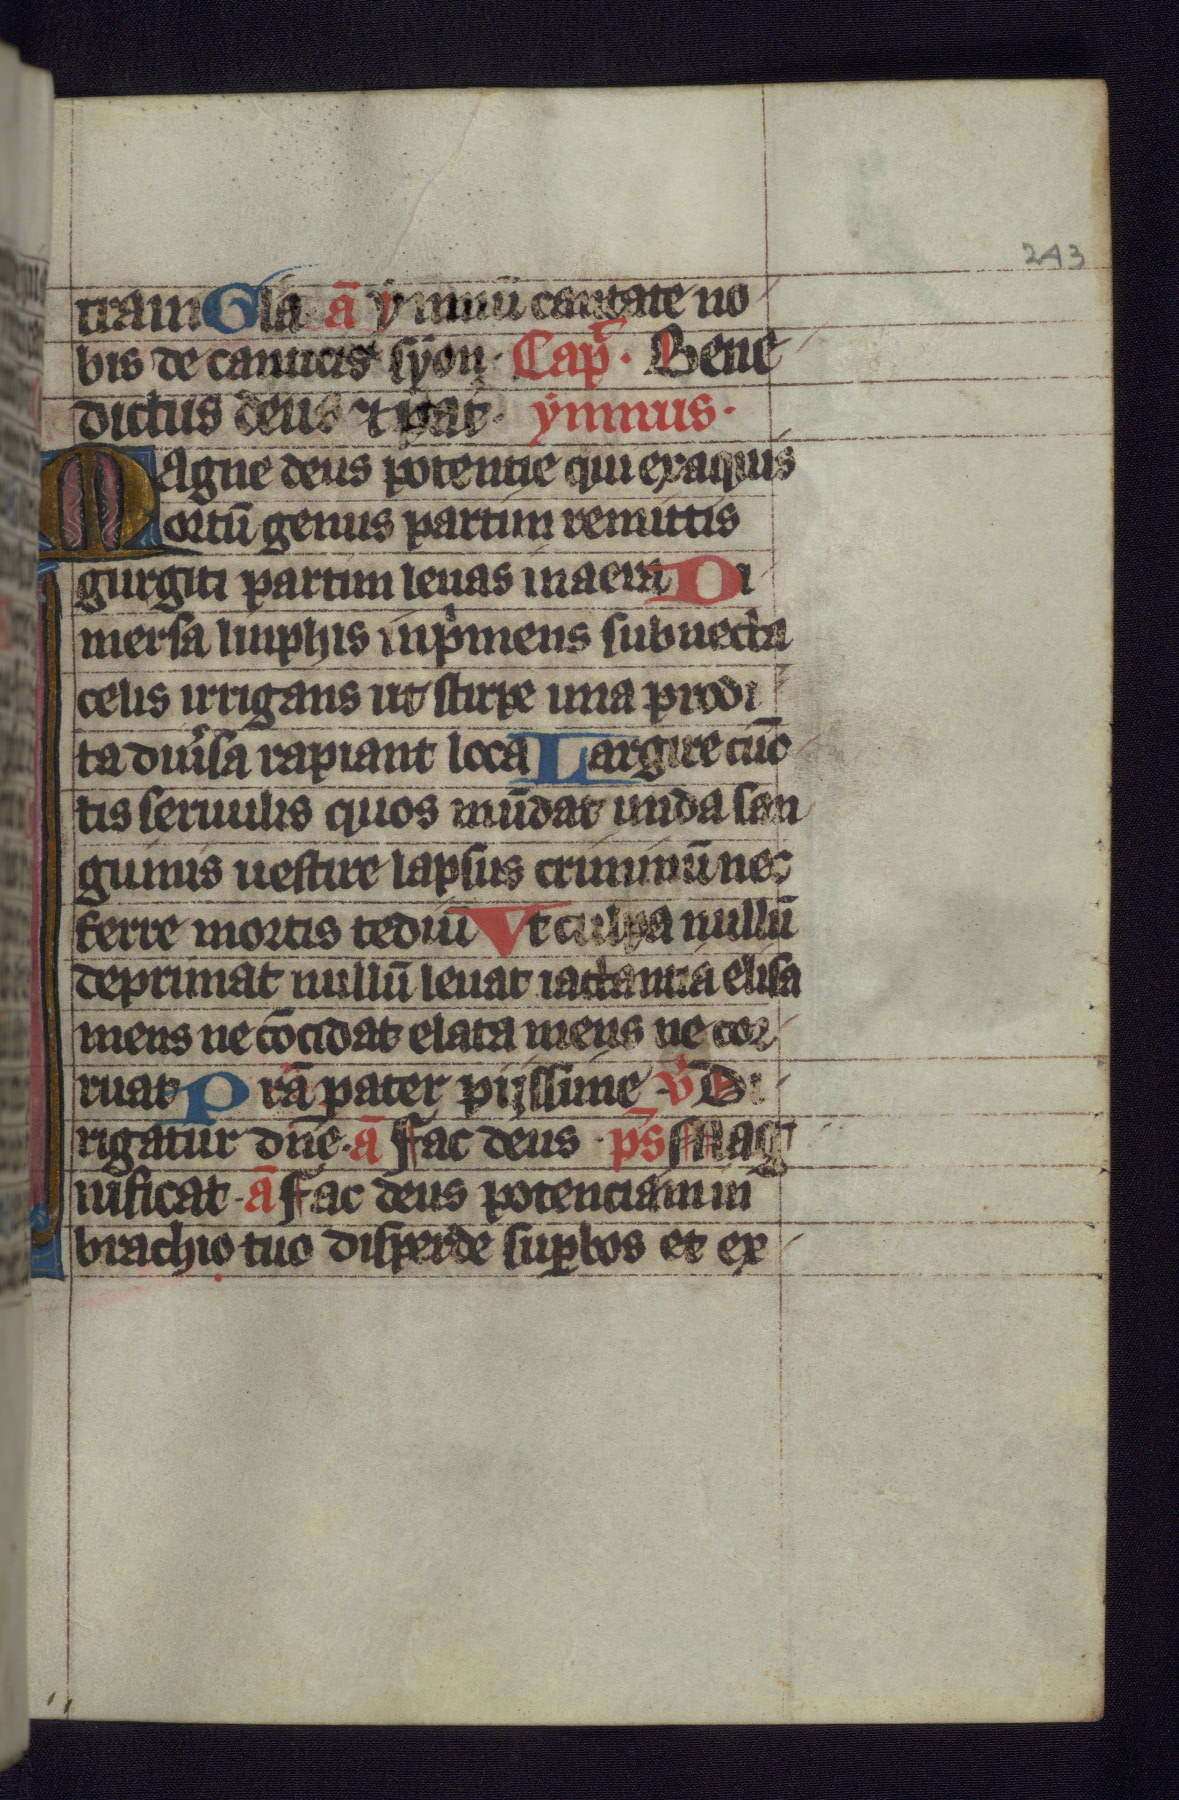 243
tram Gla ā ymnū cantate no
bis de canticis syon. Cap̄. Bene
dictus deus ⁊ pat. ymnus.
Magne deus potentie qui ex aquis
ortū genus partim remittis
gurgiti partim leuas in aera Di
mersa limphis inp̓mens subuecta
celis irrigans ut stirpe una prodi
ta diu̓sa rapiant loca Largire cūc
tis seruulis quos mūdat unda san
guinis nescire lapsus criminū nec
ferre mortis tediū Vt culpa nullū
deprimat nullū leuat iactantia elisa
mens ne cōcidat elata mens ne cor
ruat Prā pater pijssime v̓ Di
rigatur dn̄e. ā Fac deus. ps̄ Mag
nificat. ā Fac deus potenciam in
brachio tuo disperde suꝑbos et ex